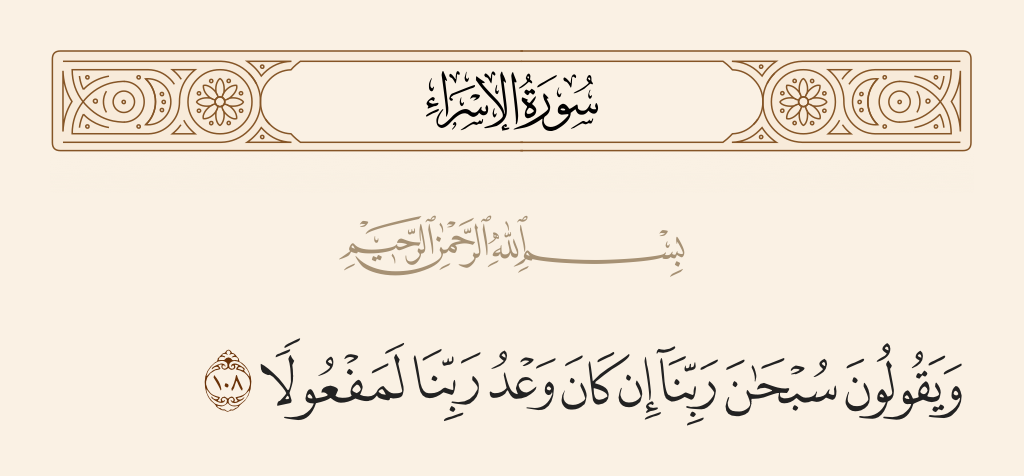 سُورَةُ الإِسْرَاءِ
بِسْمِ ٱللَّهِ ٱلرَّحْمَٰنِ ٱلرَّحِيمِ
وَيَقُولُونَ سُبْحَٰنَ رَبِّنَآ إِن كَانَ وَعْدُ رَبِّنَا لَمَفْعُولًا ١٠٨